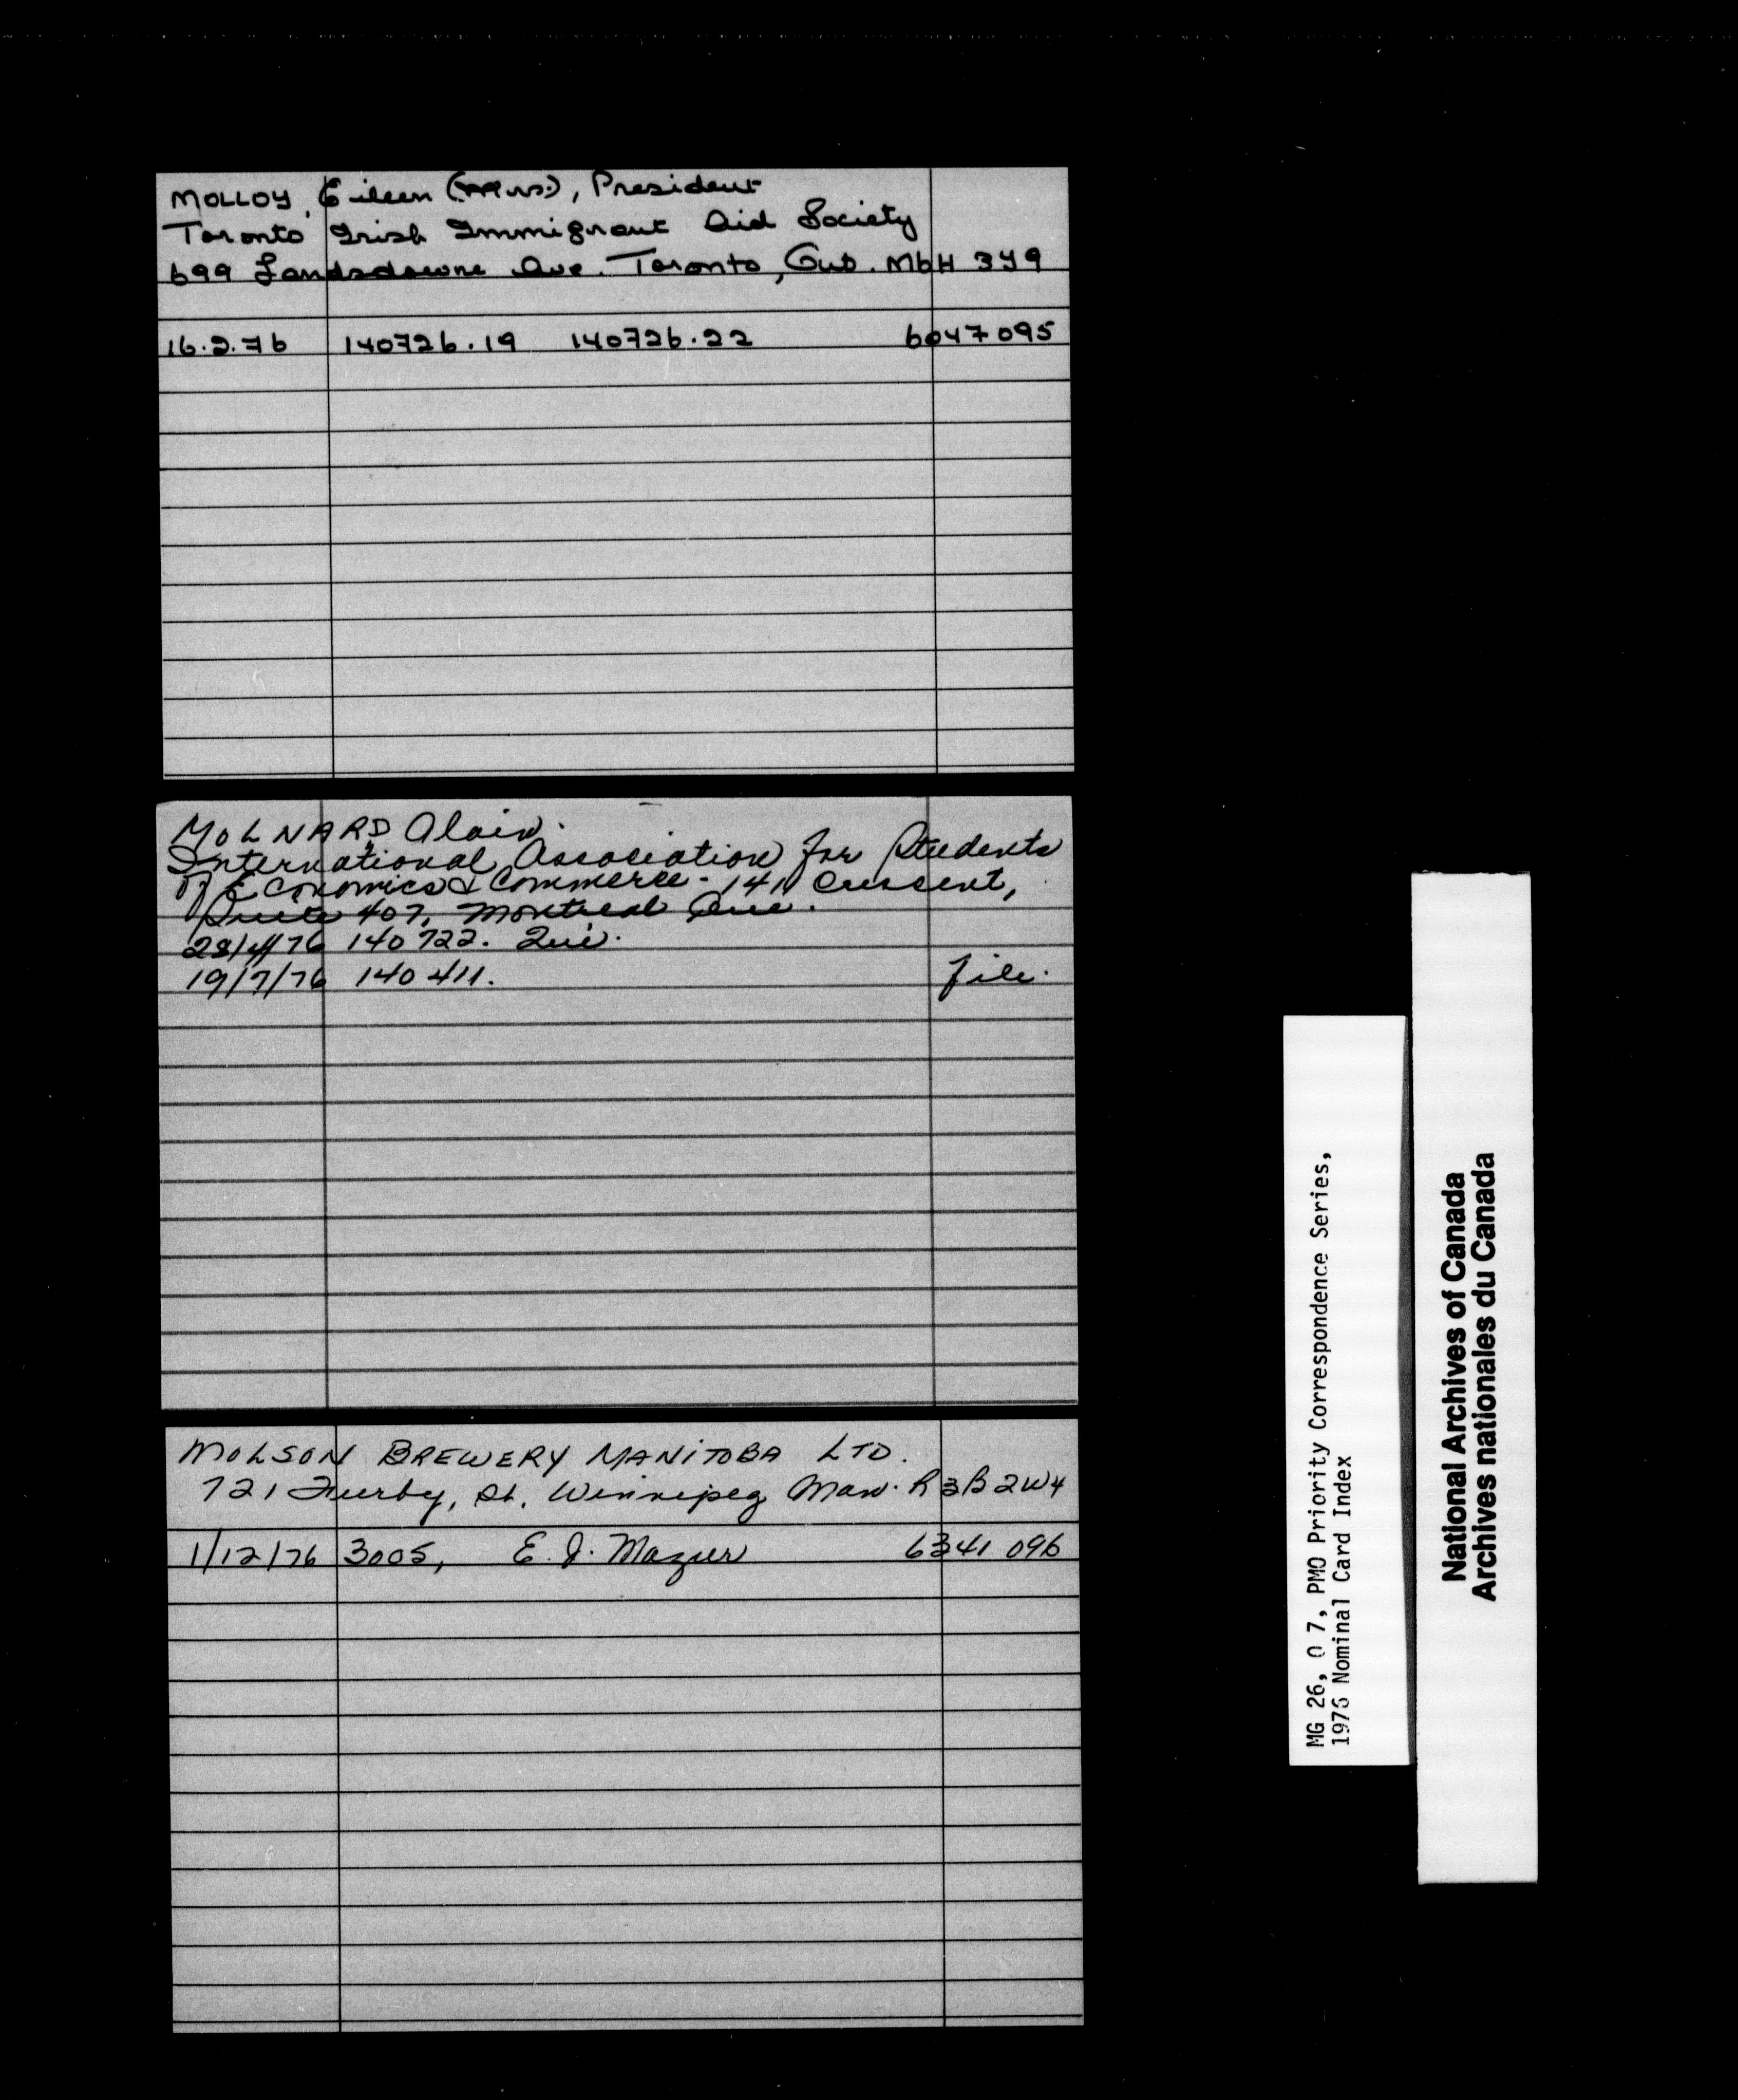 MOLLOY, Eileen (Mrs.), President
Toronto Irish Immigrant Aid Society
699 Landsdowne Ave. Toronto, Ont. M6H 3Y9
16.2.76 140726.19 140726.22 6047095
MOLNARD Alain.
International Association for Students
of Economics & Commerce - 1411 Crescent,
Suite 407, Montreal Que.
28/4/76 140722. Que.
19/7/76 140411. file.
MOLSON BREWERY MANITOBA LTD.
721 Furby, St. Winnipeg Man. R3B2W4
1/12/76 3005, E. J. Mazur 6341 096
MG 26, O 7, PMO Priority Correspondence Series,
1976 Nominal Card Index
National Archives of Canada
Archives nationales du Canada